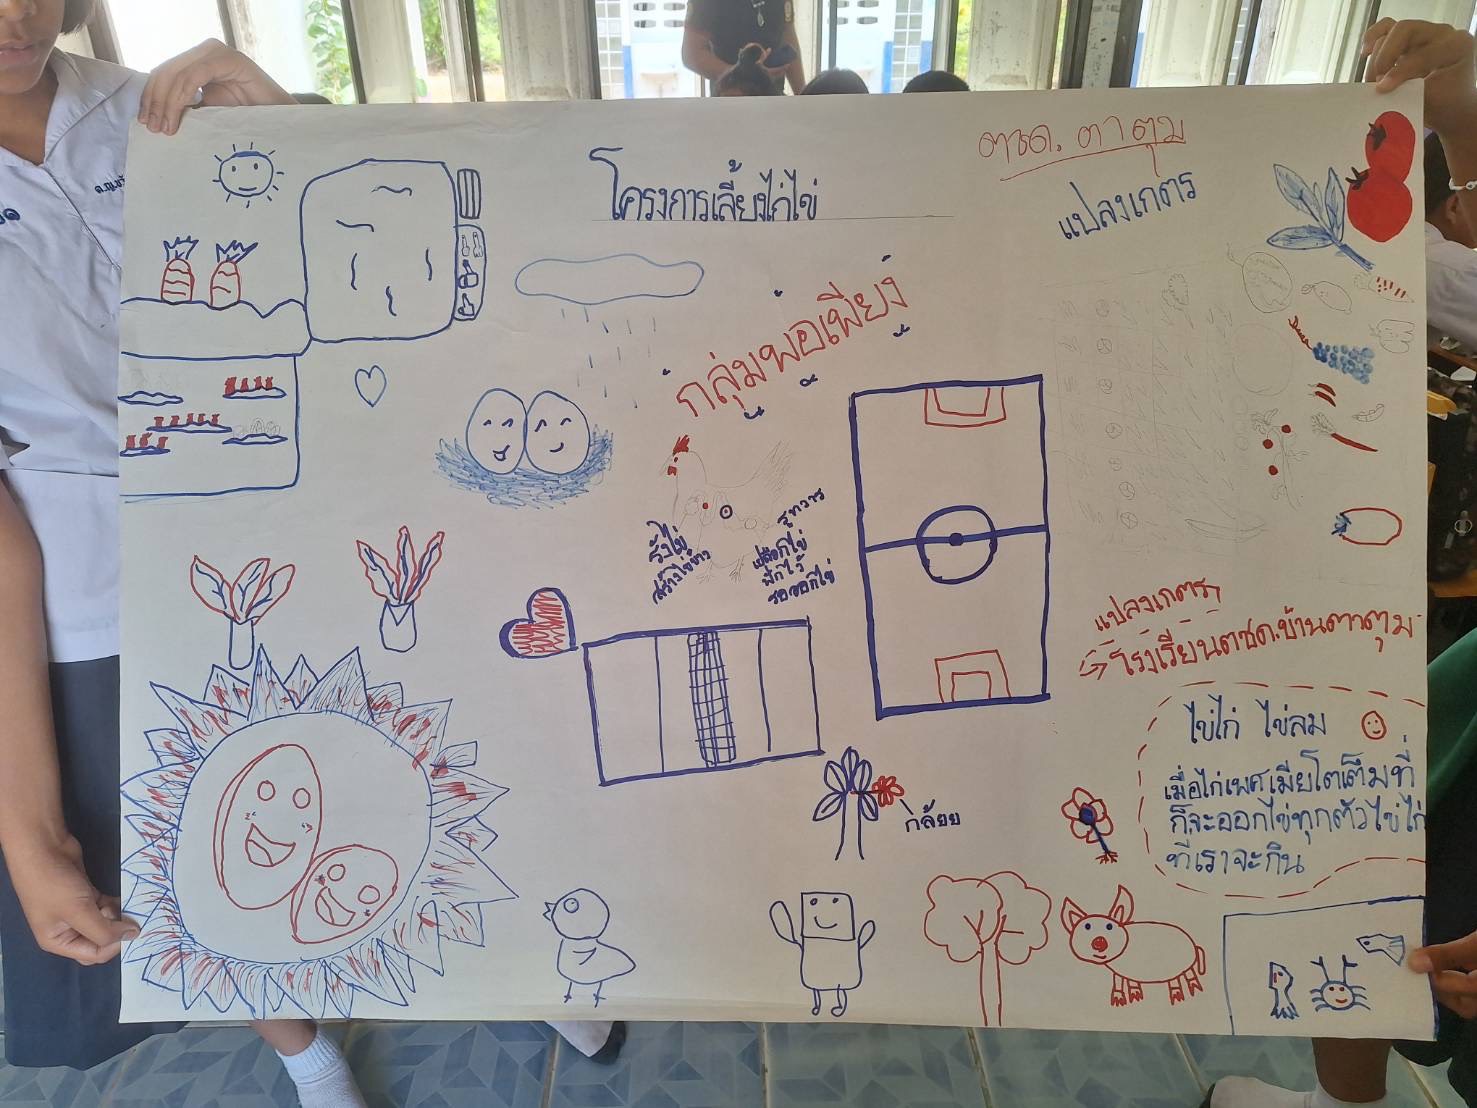 ตชด. ตาตุม
โครงการเลี้ยงไก่ไข่
แปลงเกตร
กลุ่มพอเพียง
รังไข่
สร้างไข่ขาว
รูทวาร
เปลือกไข่
พักไว้
รอออกไข่
แปลงเกตร
โรงเรียนตชด.บ้านตาตุม
ไข่ไก่ ไข่ลม
เมื่อไก่เพศเมียโตเต็มที่
ก็จะออกไข่ทุกตัวไข่ไก่
ที่เราจะกิน
กล้วย